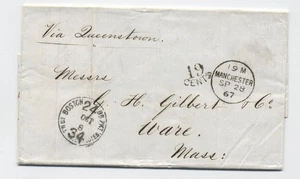 Via Queenstown.
19
CENTS
1 9 M
MANCHESTER
SP 28
67
Messrs
G. H. Gilbert & Co
BOSTON
24
OCT
8
34
Ware.
Mass: